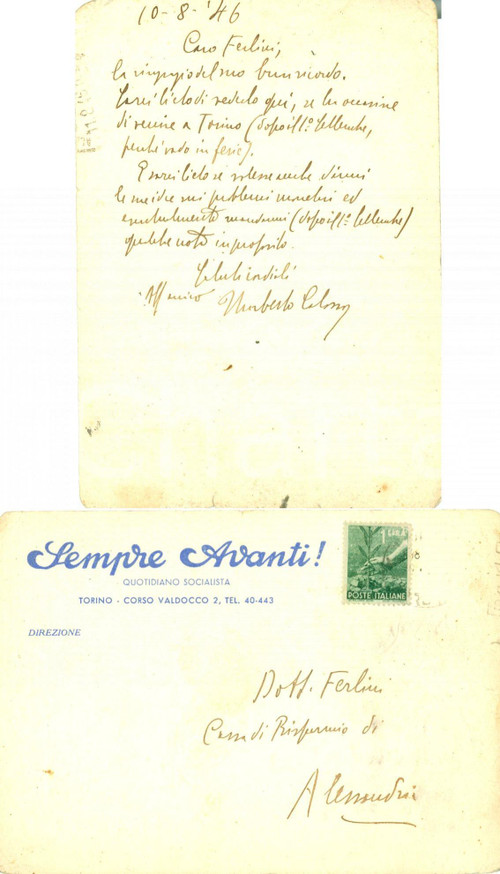 10-8-'46
Caro Ferlini,
la ringrazio del suo buon ricordo.
Sarei lieto di vederlo qui, se ha occasione
di venire a Torino (dopo il 1º settembre,
perché vado in ferie).
E sarei lieto se volesse anche dirmi
le sue idee sui problemi monetari ed
eventualmente mandarmi (dopo il 1º settembre)
qualche nota in proposito.
Saluti cordiali
Aff. amico Umberto Calosso
Sempre Avanti!
QUOTIDIANO SOCIALISTA
TORINO - CORSO VALDOCCO 2, TEL. 40-443
DIREZIONE
1 LIRA
POSTE ITALIANE
Dott. Ferlini
Cassa di Risparmio di
Alessandria